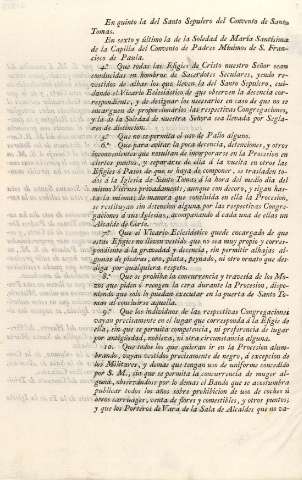 En quinto la del Santo Sepulcro del Convento de Santo
Tomas.
En sexto y último la de la Soledad de María Santísima
de la Capilla del Convento de Padres Mínimos de S. Fran-
cisco de Paula.
4.º Que todas las Efigies de Cristo nuestro Señor sean
conducidas en hombros de Sacerdotes Seculares, yendo re-
vestidos de albas los que lleven la del Santo Sepulcro, cui-
dando el Vicario Eclesiástico de que observen la decencia cor-
respondiente, y de designar los necesarios en caso de que no se
encarguen de proporcionarlos las respectivas Congregaciones,
y la de la Soledad de nuestra Señora sea llevada por Segla-
res de distincion.
5.º Que no se permita el uso de Palio alguno.
6.º Que para evitar la poca decencia, detenciones, y otros
inconvenientes que resultan de incorporarse en la Procesion en
ciertos puntos, y separarse de ella á la vuelta en otros las
Efigies ó Pasos de que se haya de componer, se trasladen to-
dos á la Iglesia de Santo Tomas á la hora del medio dia del
mismo Viérnes privadamente, aunque con decoro, y sigan has-
ta la misma; de manera que concluida en ella la Procesion,
se restituyan sin detencion alguna por las respectivas Congre-
gaciones á sus Iglesias, acompañando á cada una de ellas un
Alcalde de Corte.
7.º Que el Vicario Eclesiástico quede encargado de que
estas Efigies no lleven vestido que no sea muy propio y corres-
pondiente á la gravedad y decencia, sin permitir alhajas al-
gunas de piedras, oro, plata, peynado, ni otro ornato que des-
diga por qualquiera respeto.
8.º Que se prohiba la concurrencia y travesía de los Mo-
zos que piden ó recogen la cera durante la Procesion, dispo-
niendo que solo lo puedan executar en la puerta de Santo To-
mas al concluirse aquella.
9.º Que los individuos de las respectivas Congregaciones
vayan precisamente en el lugar que corresponda á la Efigie de
ella, sin que se permita competencia, ni preferencia de lugar
por antigüedad, nobleza, ni otra circunstancia alguna.
10. Que todos los que quieran ir en la Procesion alum-
brando, vayan vestidos precisamente de negro, á excepcion de
los Militares, y demas que tengan uso de uniforme concedido
por S. M., sin que se permita la concurrencia de muger al-
guna, observándose por lo demas el Bando que se acostumbra
publicar todos los años sobre prohibicion de uso de coches ú
otros carruages, venta de flores y comestibles, y otros puntos;
y que los Porteros de Vara de la Sala de Alcaldes que no va-